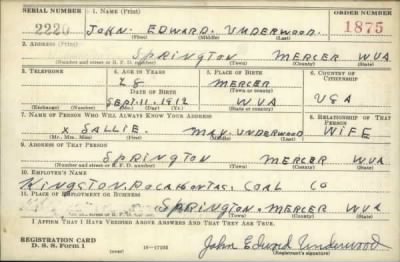 SERIAL NUMBER 1. NAME (Print) ORDER NUMBER
2220 JOHN. EDWARD. UNDERWOOD. 1875
(First) (Middle) (Last)
2. ADDRESS (Print)
SPRINGTON MERCER W.VA
(Number and street or R. F. D. number) (Town) (County) (State)
3. TELEPHONE 4. AGE IN YEARS 5. PLACE OF BIRTH 6. COUNTRY OF CITIZENSHIP
28 MERCER
DATE OF BIRTH (Town or county)
SEPT. 11. 1912 W.VA USA
(Exchange) (Number) (Mo.) (Day) (Yr.) (State or country)
7. NAME OF PERSON WHO WILL ALWAYS KNOW YOUR ADDRESS 8. RELATIONSHIP OF THAT PERSON
X SALLIE. MAY. UNDERWOOD WIFE
(Mr., Mrs., Miss) (First) (Middle) (Last)
9. ADDRESS OF THAT PERSON
SPRINGTON MERCER W.VA
(Number and street or R. F. D. number) (Town) (County) (State)
10. EMPLOYER'S NAME
KINGSTON. POCAHONTAS. COAL CO
11. PLACE OF EMPLOYMENT OR BUSINESS
SPRINGTON. MERCER W.VA
(Number and street or R. F. D. number) (Town) (County) (State)
I AFFIRM THAT I HAVE VERIFIED ABOVE ANSWERS AND THAT THEY ARE TRUE.
REGISTRATION CARD
D. S. S. Form 1 (over) 16—17105 John Edward Underwood
(Registrant's signature)